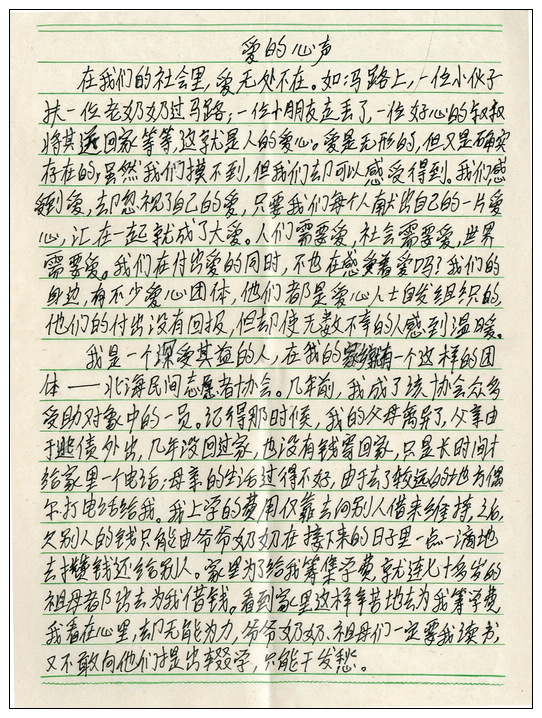 爱的心声
在我们的社会里,爱无处不在。如:马路上,一位小伙子
扶一位老奶奶过马路;一位小朋友走丢了,一位好心的叔叔
将其送回家等等,这就是人的爱心。爱是无形的,但又是确实
存在的,虽然我们摸不到,但我们却可以感受得到。我们感
受到爱,却忽视了自己的爱,只要我们每个人献出自己的一片爱
心,汇在一起就成了大爱。人们需要爱,社会需要爱,世界
需要爱。我们在付出爱的同时,不也在感受着爱吗?我们的
身边,有不少爱心团体,他们都是爱心人士自发组织的,
他们的付出没有回报,但却使无数不幸的人感到温暖。
我是一个深受其益的人,在我的家乡就有一个这样的团
体——北海民间志愿者协会。几年前,我成了该协会众多
受助对象中的一员。记得那时候,我的父母离异了,父亲由
于躲债外出,几年没回过家,也没有钱寄回家,只是长时间才
给家里一个电话;母亲的生活过得不好,由于去了较远的地方偶
尔打电话给我。我上学的费用仅靠去向别人借来维持,之后,
欠别人的钱只能由爷爷奶奶在接下来的日子里一点一滴地
去攒钱还给别人。家里为了给我筹集学费,就连七十多岁的
祖母都出去为我借钱。看到家里这样辛苦地去为我筹学费,
我看在心里,却无能为力,爷爷奶奶、祖母们一定要我读书,
又不敢向他们提出辍学,只能干发愁。